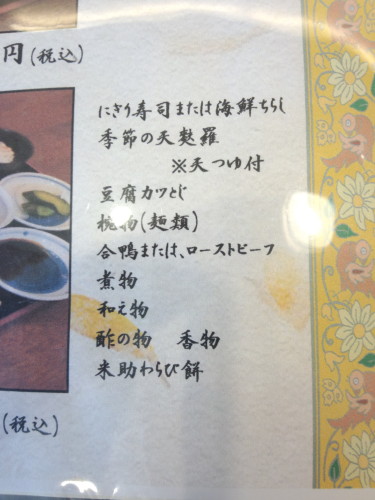 円(税込)
にぎり寿司または海鮮ちらし
季節の天麩羅
※天つゆ付
豆腐カツとじ
椀物(麺類)
合鴨または、ローストビーフ
煮物
和え物
酢の物 香物
米助わらび餅
(税込)